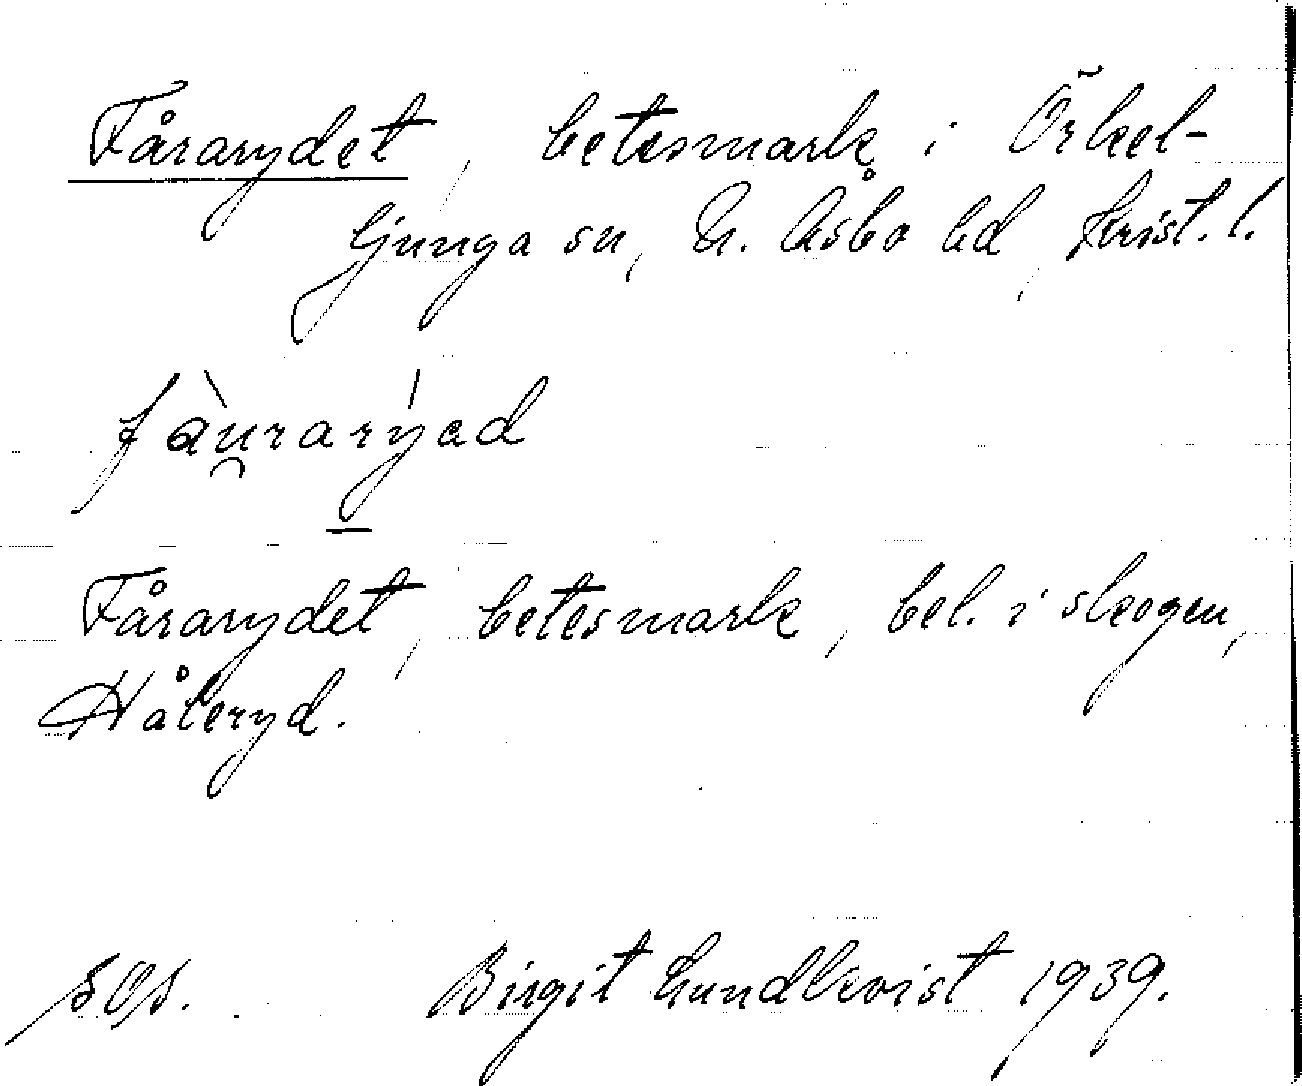 Fårarydet, betesmark i Örkel-
ljunga sn, N. Åsbo hd, Krist. l.
fàu̯rarýəd
Fårarydet, betesmark, bel. i skogen,
Håleryd.
Birgit Lundkvist 1939.